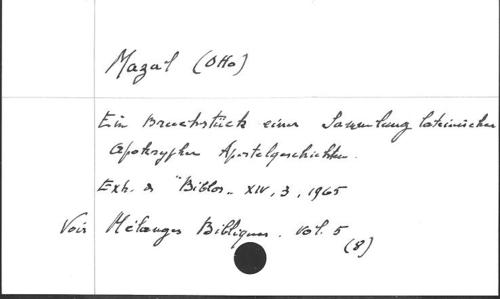 Mazal (Otto)
Ein Bruchstück einer Sammlung lateinischer
Apokrypher Apostelgeschichten.
Extr. de "Biblos" XIV, 3, 1965
Voir Mélanges Bibliques. Vol. 5
(8)